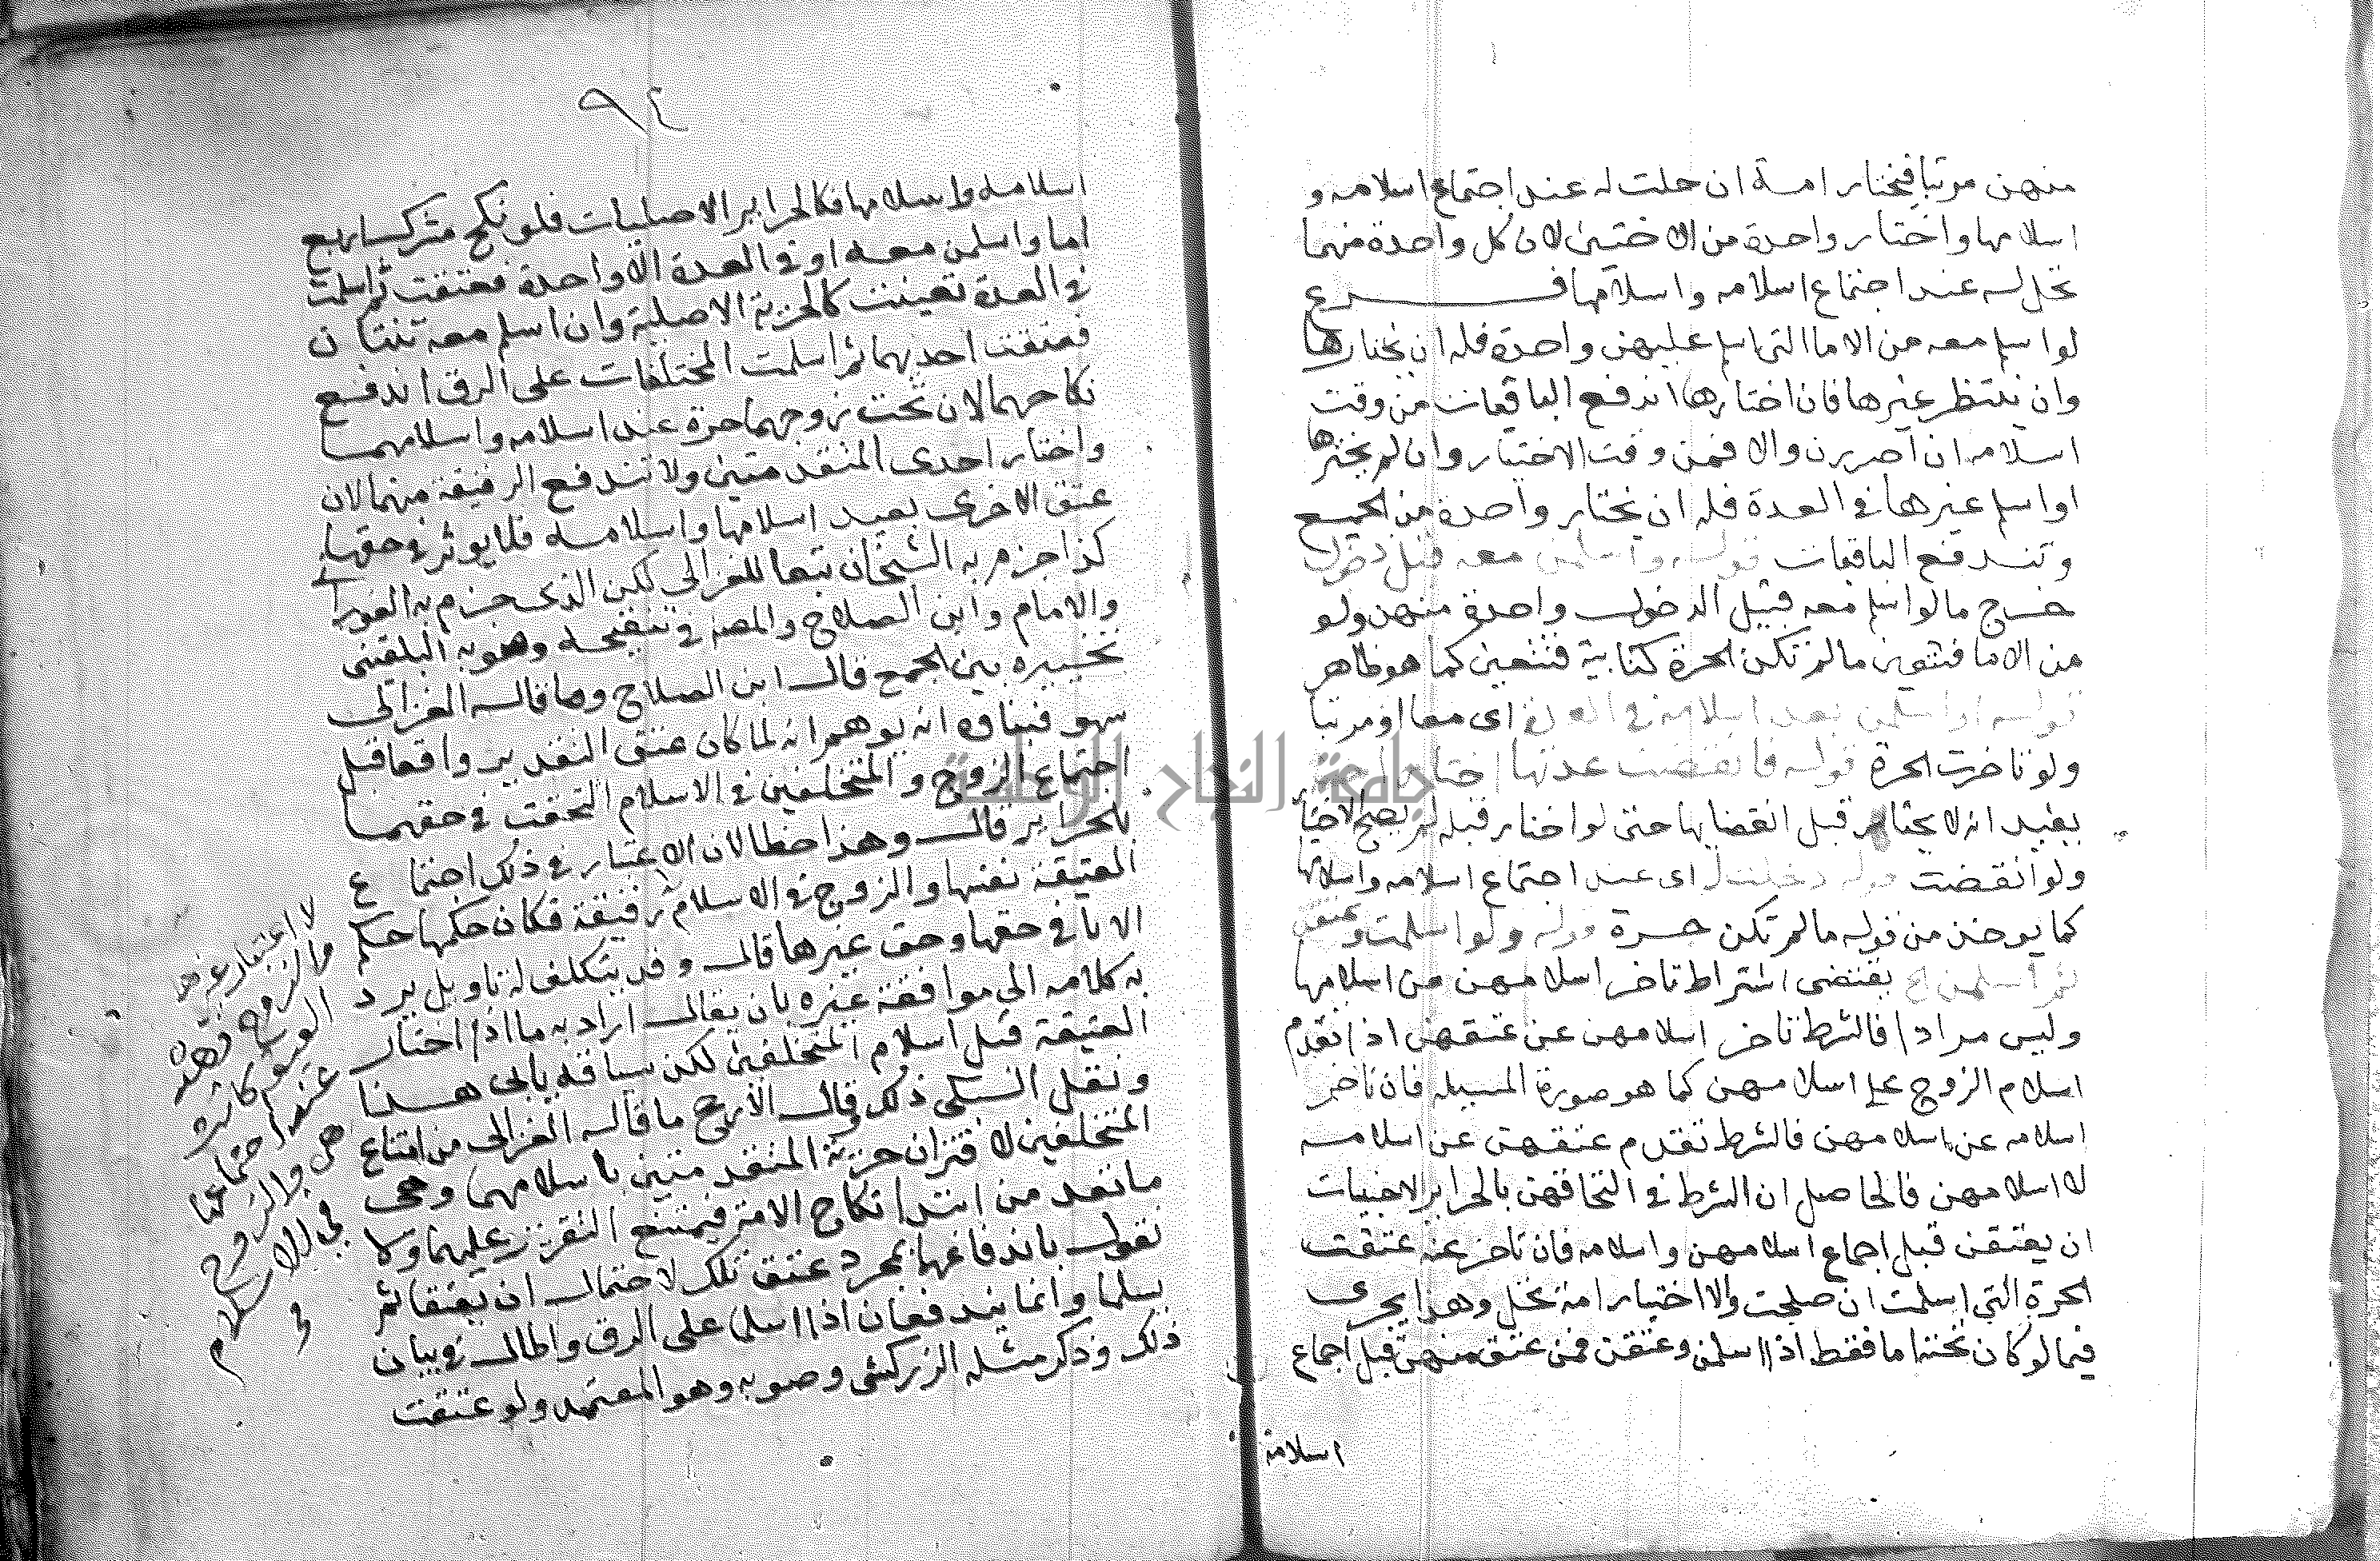 منهن مرتبا فيختار امة ان حلت له عند اجتماع اسلامه و
اسلامها واختار واحدة من الاختين لان كل واحدة منهما
تحل له عند اجتماع اسلامه واسلامها فرع
لو اسلم معه من الاما التي اسلم عليهن واحدة فله ان يختارها
وان ينتظر غيرها فان اختارها اندفع الباقيات من وقت
اسلامه ان اصررن والا فمن وقت الاختيار وان لم يخترها
او اسلم غيرها في العدة فله ان يختار واحدة من الجميع
وتندفع الباقيات قوله واسلمن معه قبل دخول
خرج ما لو اسلم معه قبيل الدخول واحدة منهن ولو
من الاما فتتعين ما لم تكن الحرة كتابية فتتعين كما هو ظاهر
قوله او اسلمن بعد اسلامه في العدة اى معا او مرتبا
ولو تاخرت الحرة قوله فانقضت عدتها اختار
يفيد انه لا يختار قبل انقضايها حتى لو اختار قبله لم يصح الاختيا
ولو انقضت قوله دخلت اى عند اجتماع اسلامه واسلامها
كما يوخذ من قوله ما لم تكن حرة قوله ولو اسلمت وعتقن
ثم اسلمن الخ يقتضى اشتراط تاخر اسلامهن عن اسلامها
وليس مرادا فالشرط تاخر اسلامهن عن عتقهن اذا تقدم
اسلام الزوج على اسلامهن كما هو صورة المسيله فان تاخر
اسلامه عن اسلامهن فالشرط تقدم عتقهن عن اسلامه
لا اسلامهن فالحاصل ان الشرط في التحاقهن بالحراير الاجنبيات
ان يعتقن قبل اجماع اسلامهن واسلامه فان تاخر عنه عتقت
الحرة التي اسلمت ان صلحت والا اختيار امة تحل وهذا يجرى
فيما لو كان تحته اما فقط اذا اسلمن وعتقن فمن عتق منهن قبل اجماع
اسلامه
٩٢
اسلامه واسلامها فكالحراير الاصليات فلو نكح مشرك اربع
اما واسلمن معه او في العدة الا واحدة فعتقت ثم اسلمت
في العدة تعينت كالحرية الاصلية وان اسلم معه ثنتان
فعتقت احديهما ثم اسلمت المختلفات على الرق اندفع
نكاحهما لان تحت زوجهما حرة عند اسلامه واسلامهما
واختار احدى المتقدمتين ولا تندفع الرقيقة منهما لان
عتق الاخرى بعيد اسلامها واسلامه فلا يوثر في حقها
كذا جزم به الشيخان تبعا للغزالى لكن الذى جزم به الفوراني
والامام وابن الصلاح والمصنف في تنقيحه وصوبه البلقيني
تخييره بين الجمع قال ابن الصلاح وما قاله الغزالى
سهو فبناوه انه يوهم انه لما كان عتق التقدير واقعا قبل
اجتماع الزوج والمتخلفين في الاسلام التحقت في حقهما
بالحراير قال وهذا خطا لان الاعتبار في ذلك اجتماع
العتيقة نفسها والزوج في الاسلام رقيقة فكان حكمها حكم
الاما في حقها وحق غيرها قال وقد يتكلف له تاويل يرد
به كلامه الى موافقة غيره بان يقال اراد به ما اذا اختار
العتيقة قبل اسلام المتخلفين لكن سياقه يابى هذا
ونقل السبكى ذلك قال الارجح ما قاله الغزالى من امتناع
المتخلفين لاقتران حرية المتقدمتين باسلامهما وهى
ما تعد من ابتدا نكاح الامة فيمتنع التقرير عليهما ولا
نقول باندفاعها بمجرد عتق تلك لاحتمال ان يعتقا ثم
يسلما وانما يندفعان اذا اسلما على الرق واطال في بيان
ذلك وذكر مثله الزركشى وصوبه وهو المعتمد ولو عتقت
لا اعتبار غيرها
والزوج
عند اجتماعها
هى والزوج
في الاسلام
جامعة النجاح الوطنية